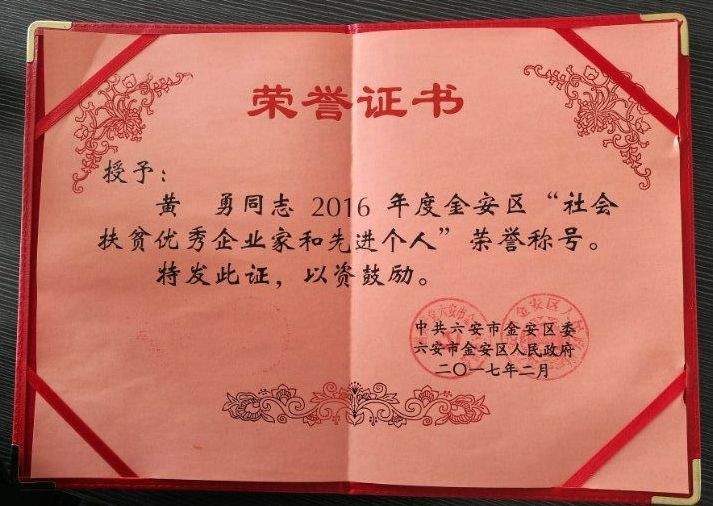 荣誉证书
授予：
黄 勇同志 2016 年度金安区“社会
扶贫优秀企业家和先进个人”荣誉称号。
特发此证，以资鼓励。
中共六安市金安区委
六安市金安区人民政府
二〇一七年二月